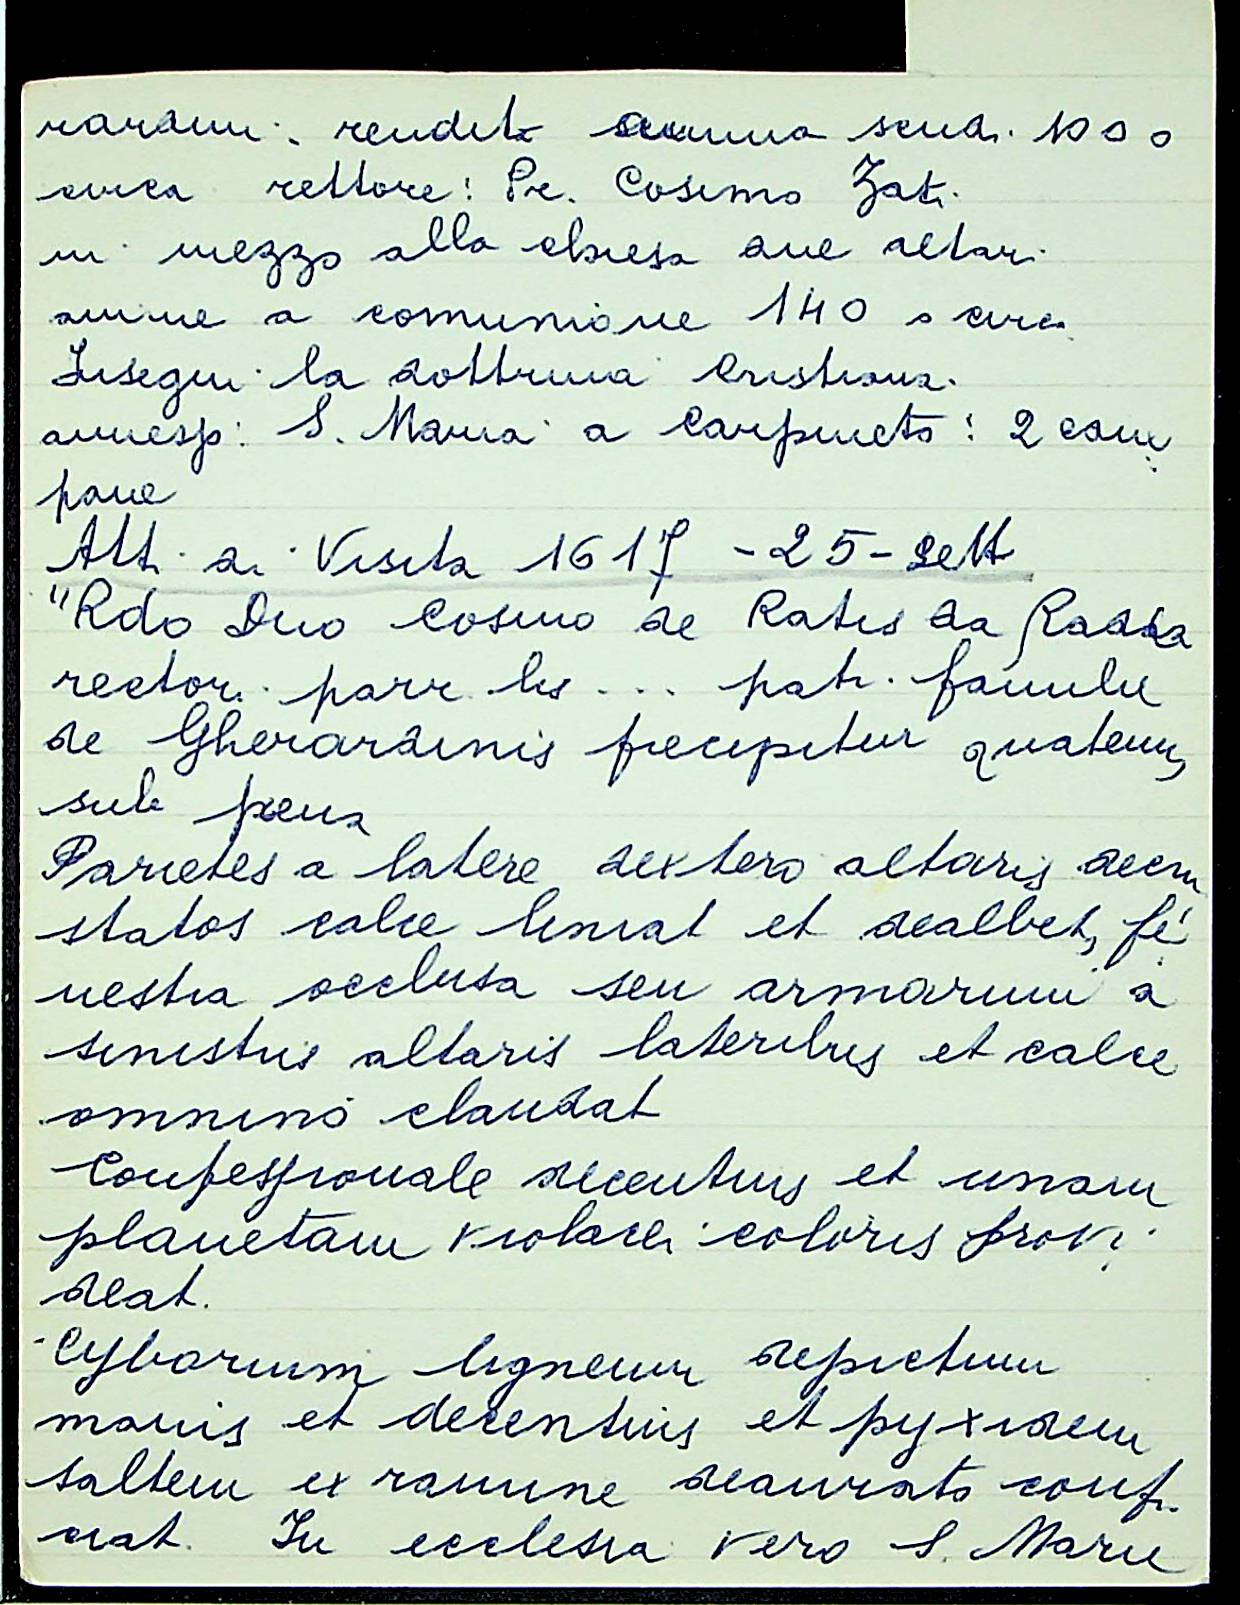 rardini: rendita annua scudi 100 o
circa rettore: Pr. Cosimo Zati.
in mezzo alla chiesa due altari
anime a comunione 140 o circa
Insegni la dottrina cristiana.
annesso: S. Maria a Carpineto: 2 cam
pane
Atti di Visita 1617 - 25 - Sett
"Rdo Dno Cosimo de Ratis da Radda
rectori parr. lis ... patr. familie
de Gherardinis precipitur quatenus
sub pena
Parietes a latere dextero altaris decru
statos calce liniat et dealbet, fe
nestra occlusa seu armarium a
sinistris altaris lateribus et calce
omnino claudat
Confessionale decentius et unam
planetam violacei coloris provi
deat.
Cyborium ligneum depictum
maius et decentius et pyxidem
saltem ex ramine deaurato confi
ciat. In ecclesia vero S. Marie